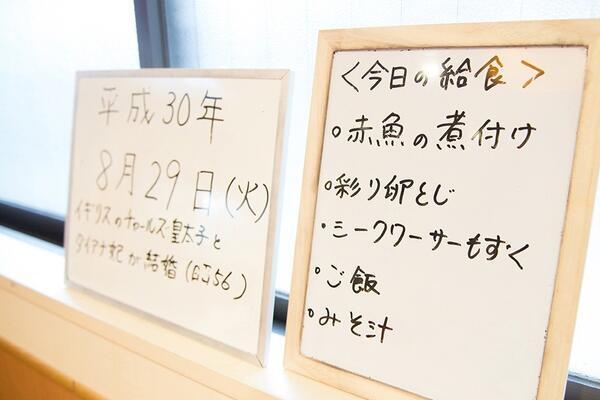 平成30年
8月29日(火)
イギリスのチャールズ皇太子と
ダイアナ妃が結婚(S56)
<今日の給食>
・赤魚の煮付け
・彩り卵とじ
・シークワーサーもずく
・ご飯
・みそ汁